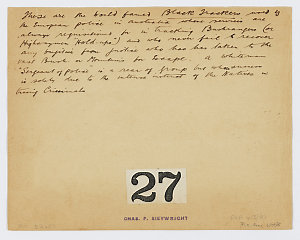 These are the world famed Black Trackers used by
the European police in Australia whose services are
always requisitioned for in tracking Bushrangers (or
Highwaymen Hold-ups) and who never fail to recover
any fugitive from justice who has taken to the
vast Bush or Mountains for escape. A whiteman
Sergeant of police is in rear of group but whose success
is solely due to the intense interest of the Natives in
tracing Criminals
27
CHAS. P. SIEVWRIGHT